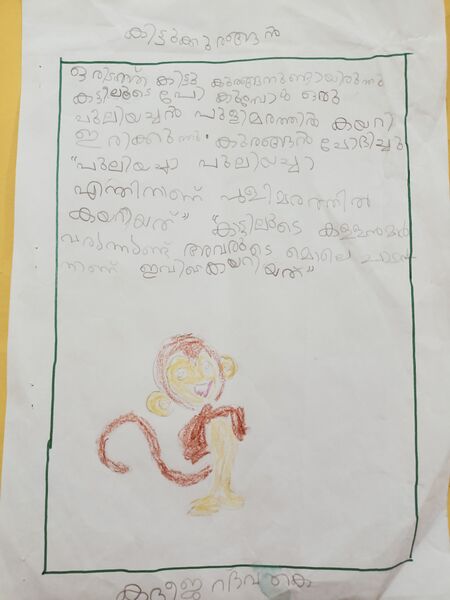 കിട്ടുക്കുരങ്ങൻ
ഒരിടത്ത് കിട്ടു കുരങ്ങനുണ്ടായിരുന്നു
കട്ടിലൂടെ പോ കുമ്പോൾ ഒരു
പുലിയച്ചൻ പുളിമരത്തിൽ കയറി
ഇരിക്കുന്നു. കുരങ്ങൻ ചോദിച്ചു
"പുലിയച്ചാ പുലിയച്ചാ
എന്തിനാണ് പുളിമരത്തിൽ
കയറിയത്" "കട്ടിലൂടെ കള്ളന്മാർ
വരുന്നുണ്ട് അവരുടെ മേലെ ചാടാ
നാണ് ഇവിടെകയറിയത്"
ഖദീജ റിദ കെ